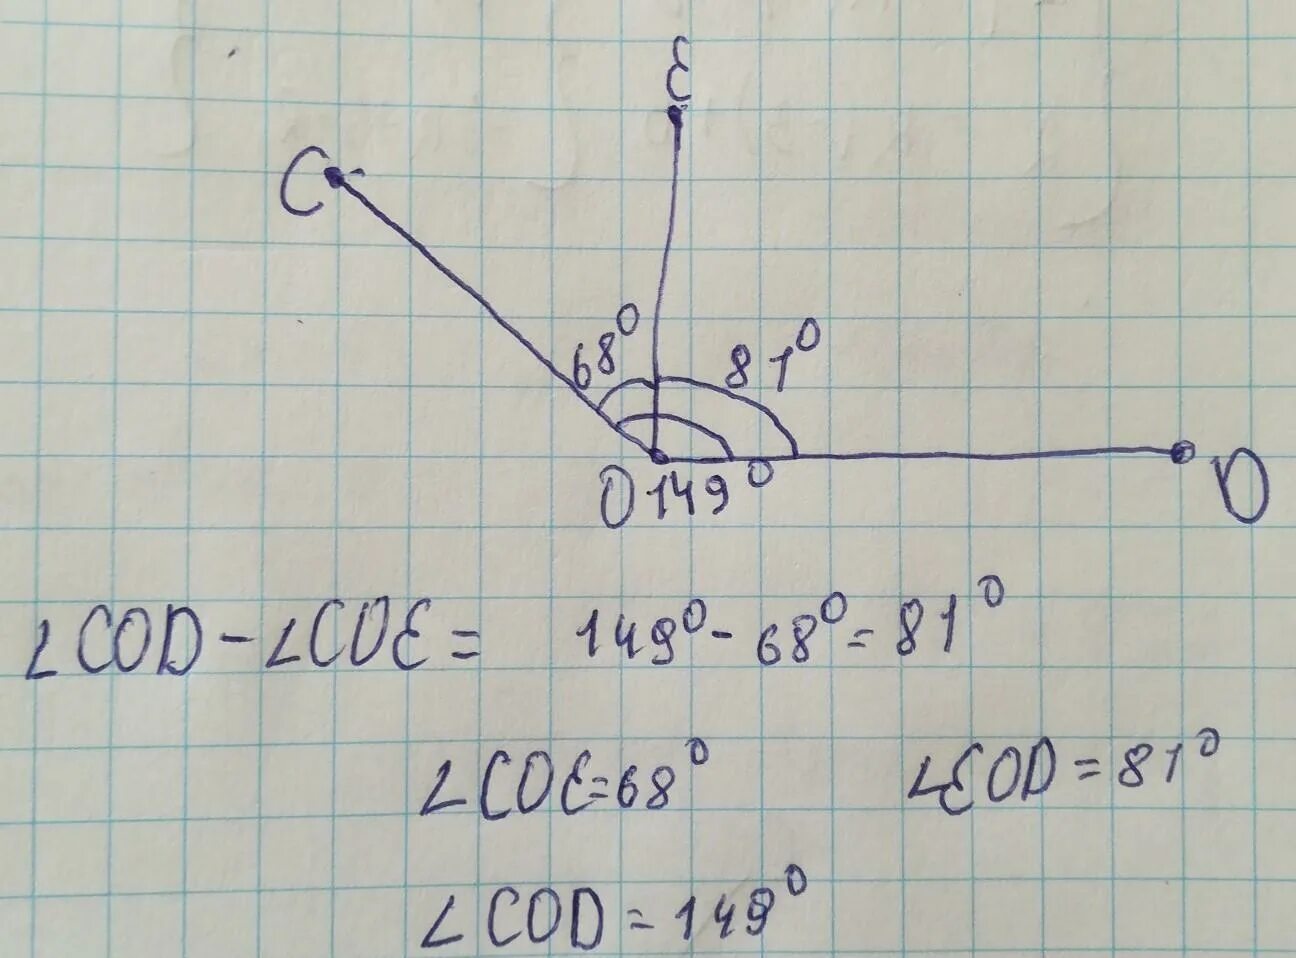 E
C
68° 81°
O 149° D
∠COD - ∠COE = 149° - 68° = 81°
∠COE = 68° ∠EOD = 81°
∠COD = 149°